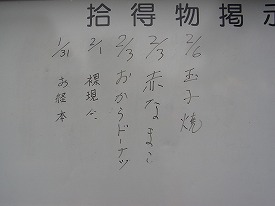 拾得物掲示
2/6 玉子焼
2/3 赤なまこ
2/3 おからドーナツ
2/1 裸現金
1/31 お経本